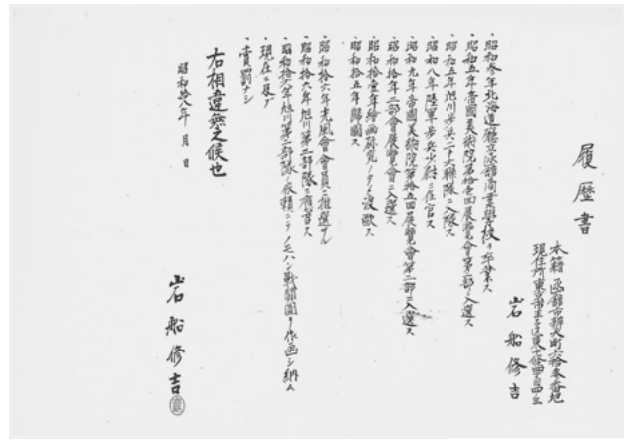 履歴書
本籍 函館市辯天町六拾番地
現住所東京市王子区東十條四ノ四ノ三
岩船修吉
昭和参年北海道廳立函館商業學校ヲ卒業ス
昭和五年帝國美術院第拾壱回展覧會第二部ニ入選ス
昭和五年旭川歩兵二十六聯隊ニ入隊ス
昭和八年陸軍歩兵少尉ニ任官ス
昭和九年帝國美術院第拾五回展覧會第二部ニ入選ス
昭和拾年二部會展覧會ニ入選ス
昭和拾壱年絵画研究ノタメ渡歐ス
昭和拾五年歸國ス
昭和拾六年光風會會員ニ推選サル
昭和拾六年旭川第二部隊ニ應召ス
昭和拾六年旭川第二部隊ノ依頼ニテノモハン戰鬪圖ヲ作画シ納ム
現在ニ及ブ
賞罰ナシ
右相違無之候也
昭和拾八年 月 日
岩船修吉